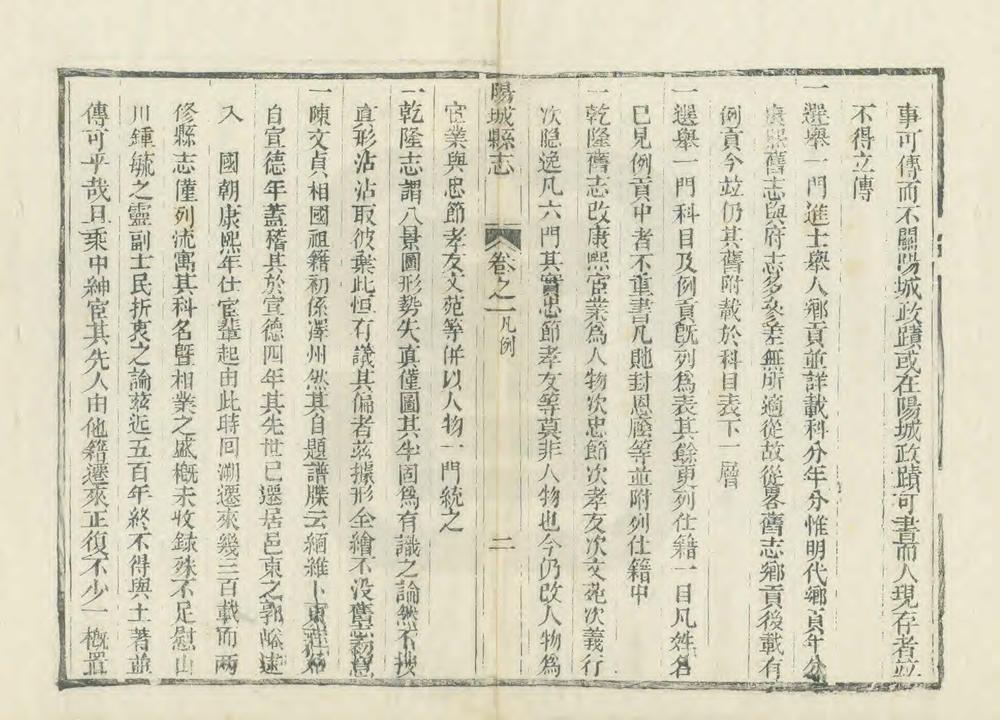 事可傳而不關陽城政蹟或在陽城政蹟可書而人現存者並
不得立傳
一選舉一門進士舉人鄉貢並詳載科分年分惟明代鄉貢年分
康熙舊志與府志多參差無所適從故從畧舊志鄉貢後載有
例貢今並仍其舊附載於科目表下一層
一選舉一門科目及例貢旣列爲表其餘更列仕籍一目凡姓名
已見例貢中者不重書凡貤封恩廕等並附列仕籍中
一乾隆舊志改康熙宦業爲人物次忠節次孝友次文苑次義行
次隐逸凡六門其實忠節孝友等莫非人物也今仍改人物爲
陽城縣志
卷之一
凡例
二
宦業與忠節孝友文苑等併以人物一門統之
一乾隆志謂八景圖形勢失真僅圖其半固爲有識之論然不挨
直形沾沾取彼棄此恒有議其偏者兹據形全繪不没舊志初意
一陳文貞相國祖籍初係澤州然其自題譜牒云緬維卜東莊
自宣德年蓋稽其於宣德四年其先世已遷居邑東之郭峪逮
入 國朝康熙年仕宦輩起由此時囘溯遷來幾三百載而兩
修縣志僅列流寓其科名曁相業之盛槪未收録殊不足慰山
川鍾毓之靈副士民折衷之論兹近五百年終不得與土著並
傳可乎哉且乘中紳宦其先人由他籍遷來正復不少一槪置